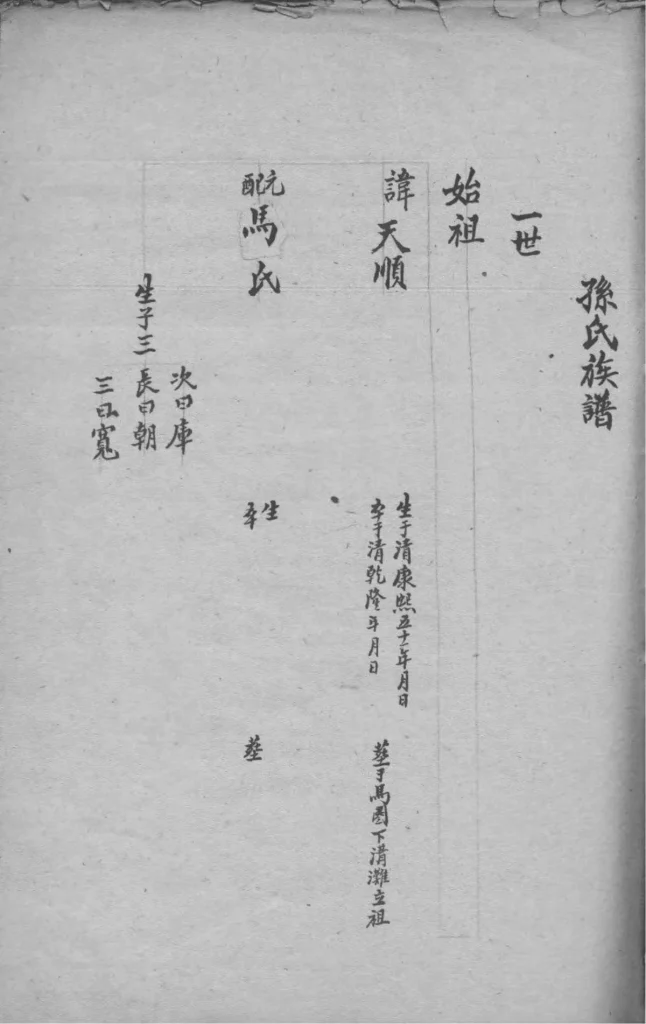 孫氏族譜
一世
始祖
諱天順
生于清康熙五十一年月日
卒于清乾隆年月日
塟于馬圈下清灘立祖
元配馬氏
生
卒
塟
生子三
次曰庫
長曰朝
三曰寬